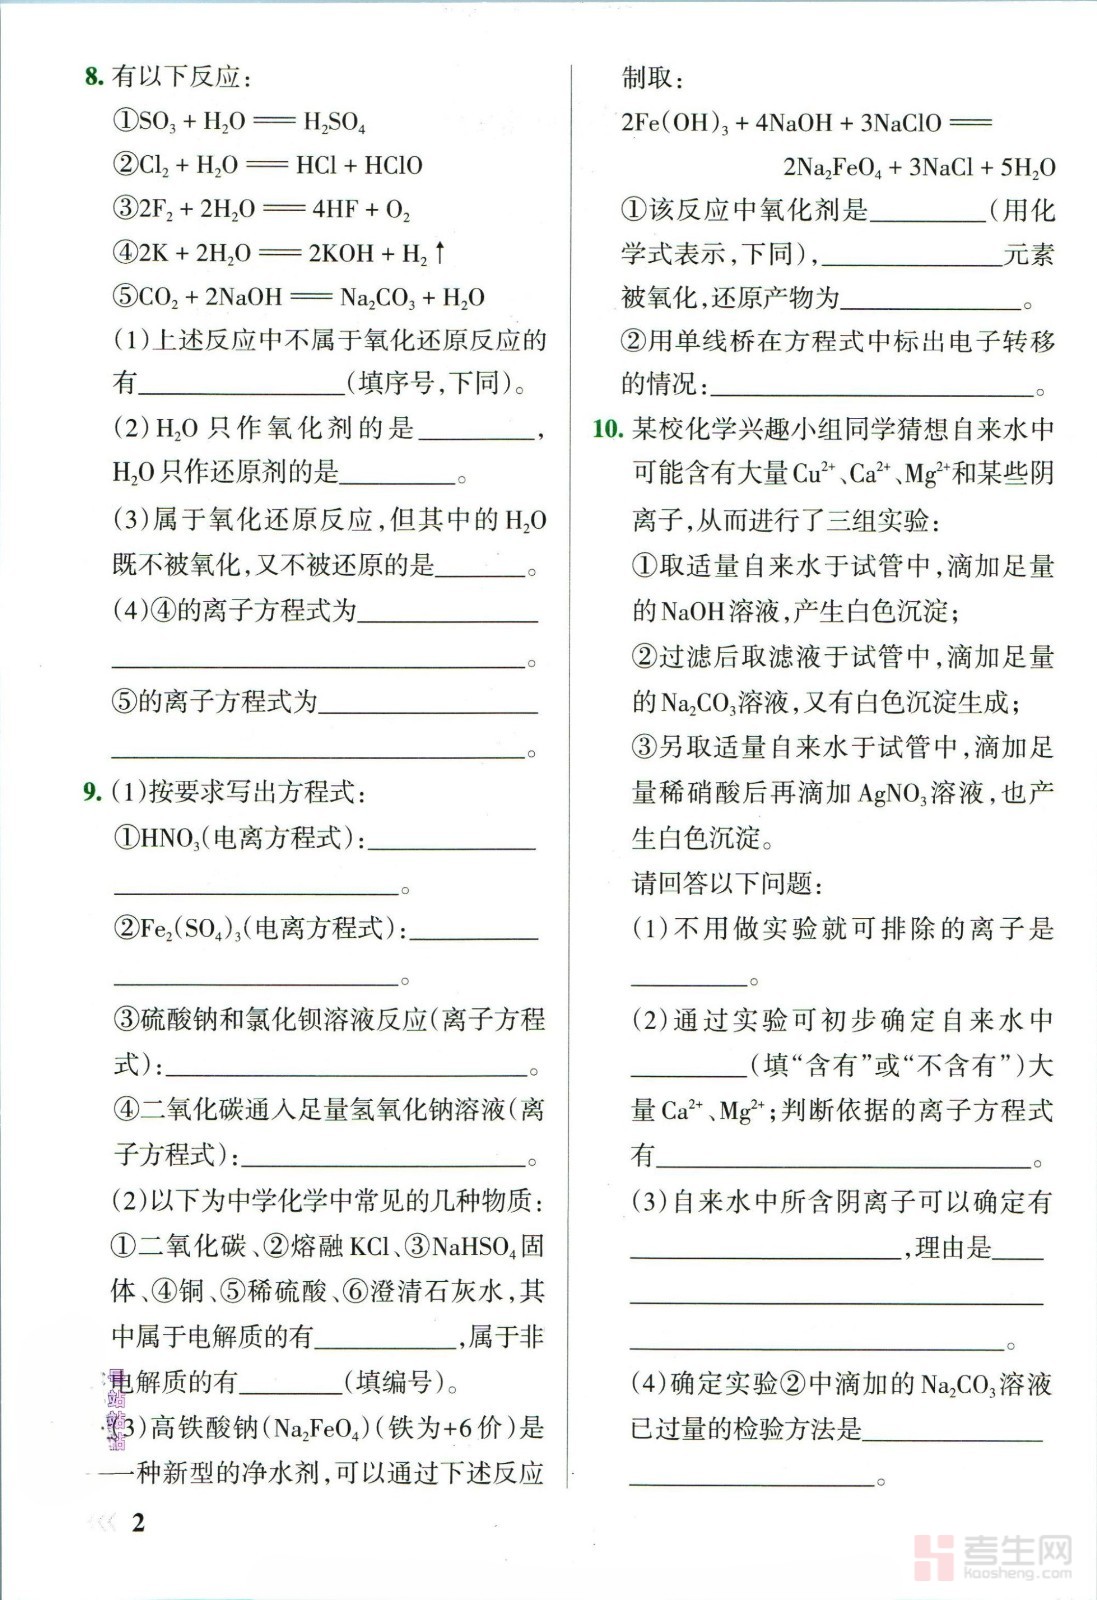 8. 有以下反应:
①SO₃ + H₂O ══ H₂SO₄
②Cl₂ + H₂O ══ HCl + HClO
③2F₂ + 2H₂O ══ 4HF + O₂
④2K + 2H₂O ══ 2KOH + H₂↑
⑤CO₂ + 2NaOH ══ Na₂CO₃ + H₂O
(1)上述反应中不属于氧化还原反应的
有________(填序号,下同)。
(2)H₂O 只作氧化剂的是________,
H₂O只作还原剂的是________。
(3)属于氧化还原反应,但其中的H₂O
既不被氧化,又不被还原的是________。
(4)④的离子方程式为________
________。
⑤的离子方程式为________
________。
9. (1)按要求写出方程式:
①HNO₃(电离方程式):________
________。
②Fe₂(SO₄)₃(电离方程式):________
________。
③硫酸钠和氯化钡溶液反应(离子方程
式):________。
④二氧化碳通入足量氢氧化钠溶液(离
子方程式):________。
(2)以下为中学化学中常见的几种物质:
①二氧化碳、②熔融 KCl、③NaHSO₄固
体、④铜、⑤稀硫酸、⑥澄清石灰水,其
中属于电解质的有________,属于非
电解质的有________(填编号)。
(3)高铁酸钠(Na₂FeO₄)(铁为+6价)是
一种新型的净水剂,可以通过下述反应
2
制取:
2Fe(OH)₃ + 4NaOH + 3NaClO ══
2Na₂FeO₄ + 3NaCl + 5H₂O
①该反应中氧化剂是________(用化
学式表示,下同),________元素
被氧化,还原产物为________。
②用单线桥在方程式中标出电子转移
的情况:________。
10. 某校化学兴趣小组同学猜想自来水中
可能含有大量Cu²⁺、Ca²⁺、Mg²⁺和某些阴
离子,从而进行了三组实验:
①取适量自来水于试管中,滴加足量
的NaOH溶液,产生白色沉淀;
②过滤后取滤液于试管中,滴加足量
的Na₂CO₃溶液,又有白色沉淀生成;
③另取适量自来水于试管中,滴加足
量稀硝酸后再滴加 AgNO₃溶液,也产
生白色沉淀。
请回答以下问题:
(1)不用做实验就可排除的离子是
________。
(2)通过实验可初步确定自来水中
________(填“含有”或“不含有”)大
量Ca²⁺、Mg²⁺;判断依据的离子方程式
有________。
(3)自来水中所含阴离子可以确定有
________,理由是____
________
________。
(4)确定实验②中滴加的Na₂CO₃溶液
已过量的检验方法是________
________。
考生网
kaosheng.com